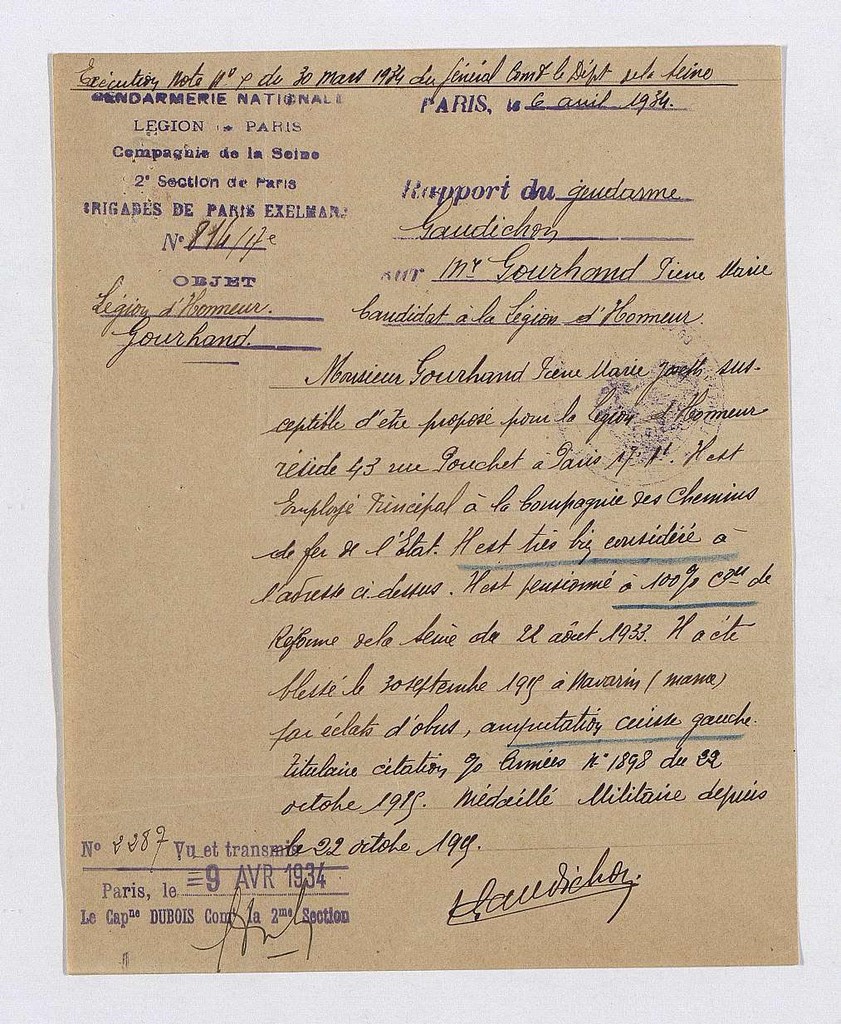 Exécution Note N° 7 du 30 mars 1934 du Général Comt le Dépt de la Seine
GENDARMERIE NATIONALE
LEGION de PARIS
Compagnie de la Seine
2e Section de Paris
BRIGADES DE PARIS EXELMANS
N° 814/17e
OBJET
Légion d'Honneur.
Gourhand.
PARIS, le 6 avril 1934.
Rapport du gendarme
Gaudichon
sur Mr Gourhand Pierre Marie
Candidat à la Légion d'Honneur.
Monsieur Gourhand Pierre Marie Joseph sus-
ceptible d'être proposé pour la Légion d'Honneur
réside 43 rue Pouchet à Paris 17 At. Il est
Employé Principal à la Compagnie des Chemins
de fer de l'Etat. Il est très bien considéré à
l'adresse ci-dessus. Il est pensionné à 100% Con de
Réforme de la Seine du 22 août 1933. Il a été
blessé le 30 septembre 1915 à Navarin (marne)
par éclats d'obus, amputation cuisse gauche.
titulaire citation % Armées N° 1898 du 22
octobre 1915. Médaillé Militaire depuis
le 22 octobre 1915.
Gaudichon
N° 2287 Vu et transmis
Paris, le =9 AVR 1934
Le Capne DUBOIS Comt la 2me Section